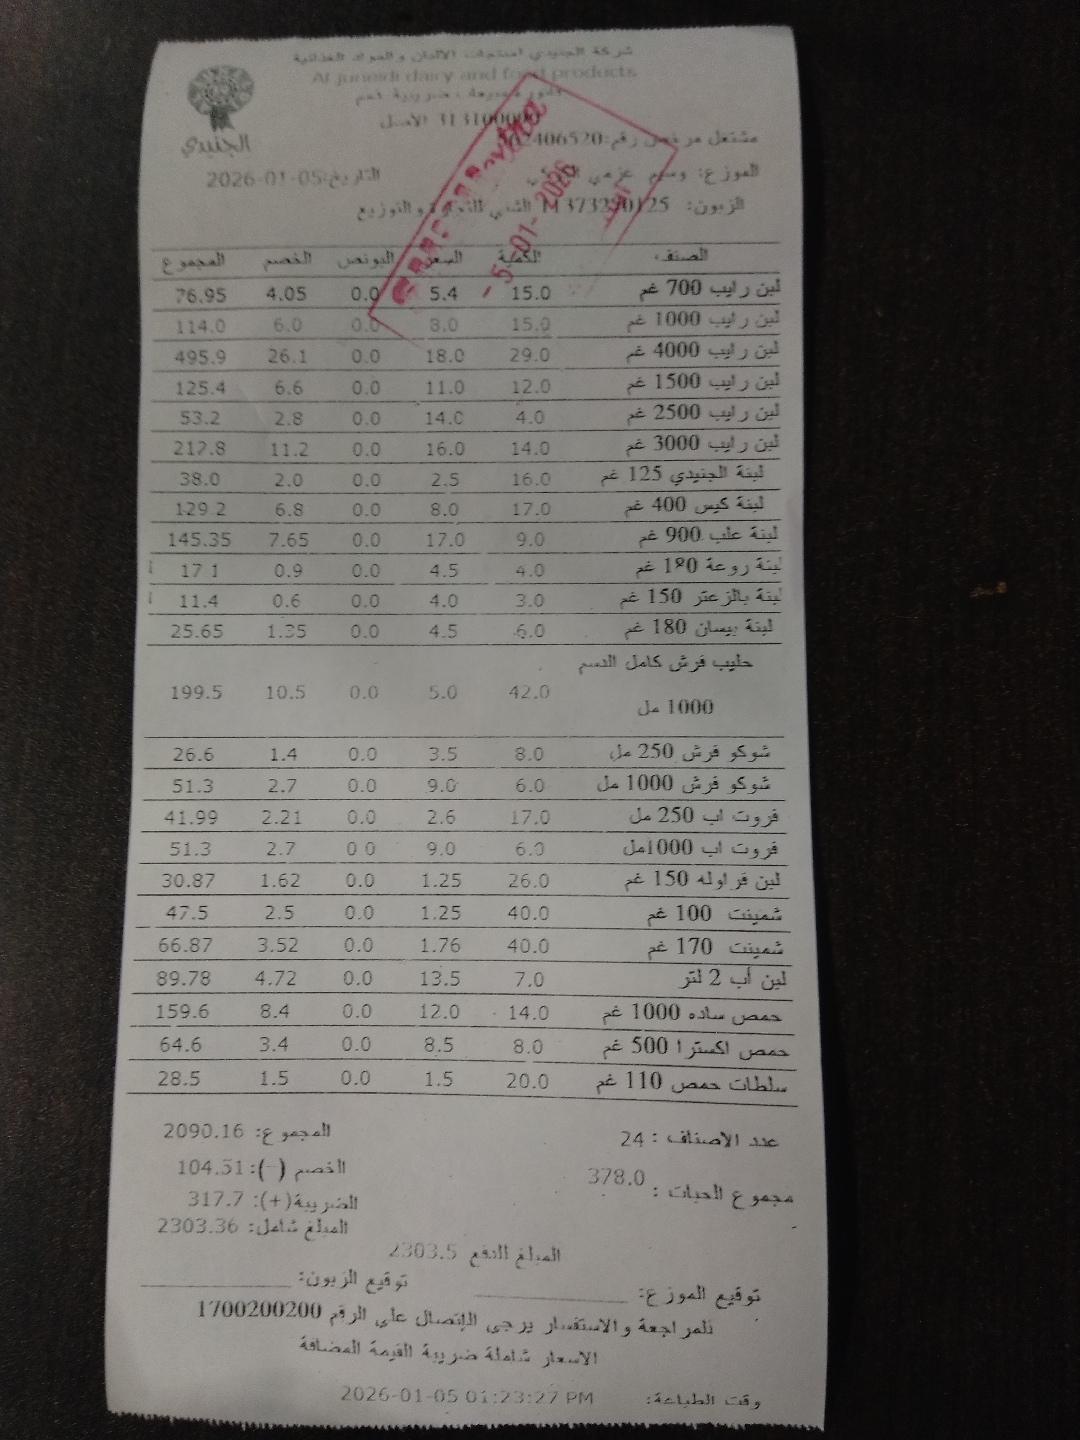 شركة الجنيدي لمنتجات الألبان والمواد الغذائية
Al juneidi dairy and food products
الجنيدي
فاتورة مبيعات ضريبية رقم
313100000 الأصل
مشتغل مرخص رقم:562406520
الموزع: وسيم عزمي التاريخ:2026-01-05
الزبون: 11373290125 الشني للتجارة والتوزيع
5-01-2026
الصنف الكمية السعر البونص الخصم المجموع
لبن رايب 700 غم 15.0 5.4 0.0 4.05 76.95
لبن رايب 1000 غم 15.0 8.0 0.0 6.0 114.0
لبن رايب 4000 غم 29.0 18.0 0.0 26.1 495.9
لبن رايب 1500 غم 12.0 11.0 0.0 6.6 125.4
لبن رايب 2500 غم 4.0 14.0 0.0 2.8 53.2
لبن رايب 3000 غم 14.0 16.0 0.0 11.2 212.8
لبنة الجنيدي 125 غم 16.0 2.5 0.0 2.0 38.0
لبنة كيس 400 غم 17.0 8.0 0.0 6.8 129.2
لبنة علب 900 غم 9.0 17.0 0.0 7.65 145.35
لبنة روعة 180 غم 4.0 4.5 0.0 0.9 17.1
لبنة بالزعتر 150 غم 3.0 4.0 0.0 0.6 11.4
لبنة بيسان 180 غم 6.0 4.5 0.0 1.35 25.65
حليب فرش كامل الدسم
1000 مل 42.0 5.0 0.0 10.5 199.5
شوكو فرش 250 مل 8.0 3.5 0.0 1.4 26.6
شوكو فرش 1000 مل 6.0 9.0 0.0 2.7 51.3
فروت اب 250 مل 17.0 2.6 0.0 2.21 41.99
فروت اب 1000مل 6.0 9.0 0.0 2.7 51.3
لبن فراوله 150 غم 26.0 1.25 0.0 1.62 30.87
شمينت 100 غم 40.0 1.25 0.0 2.5 47.5
شمينت 170 غم 40.0 1.76 0.0 3.52 66.87
لبن أب 2 لتر 7.0 13.5 0.0 4.72 89.78
حمص ساده 1000 غم 14.0 12.0 0.0 8.4 159.6
حمص اكسترا 500 غم 8.0 8.5 0.0 3.4 64.6
سلطات حمص 110 غم 20.0 1.5 0.0 1.5 28.5
عدد الاصناف : 24 المجموع: 2090.16
مجموع الحبات : 378.0 الخصم (-): 104.51
الضريبة(+): 317.7
المبلغ شامل: 2303.36
المبلغ للدفع 2303.5
توقيع الموزع: توقيع الزبون:
للمراجعة والاستفسار يرجى الإتصال على الرقم 1700200200
الاسعار شاملة ضريبة القيمة المضافة
وقت الطباعة: 2026-01-05 01:23:27 PM